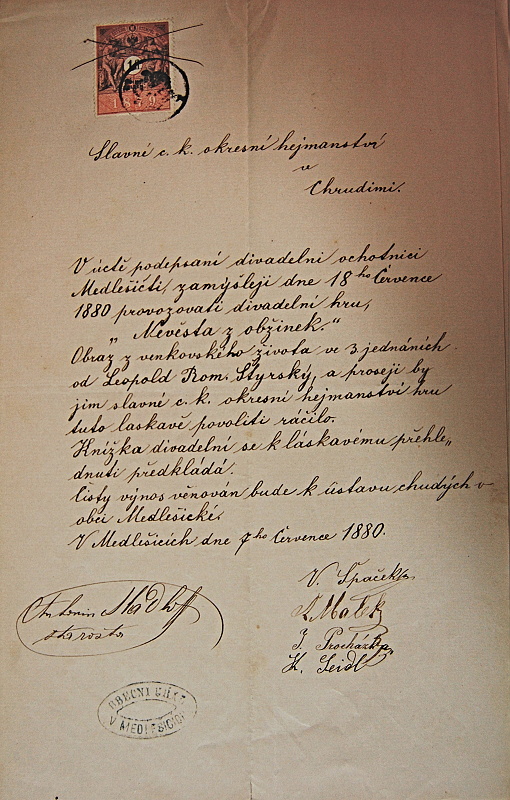 1879
Slavné c. k. okresní hejmanství
v
Chrudimi.
V úctě podepsaní divadelní ochotníci
Medlešičtí, zamýšlejí dne 18ho Července
1880 provozovati divadelní hru,
„Nevěsta z obžinek.“
Obraz z venkovského života ve 3 jednáních
od Leopold Rom. Štyrský, a prosejí by
jim slavné c. k. okresní hejmanství hru
tuto laskavě povoliti ráčilo.
Knížka divadelní se k láskavému přehle„
dnutí předkládá.
Čistý výnos věnován bude k ústavu chudých v
obci Medlešické.
V Medlešicích dne 7ho Července 1880.
Antonin
starosta
V. Špaček
Malek
J. Procházka
K. Seidl
OBECNÍ ÚŘAD
V MEDLEŠICÍCH